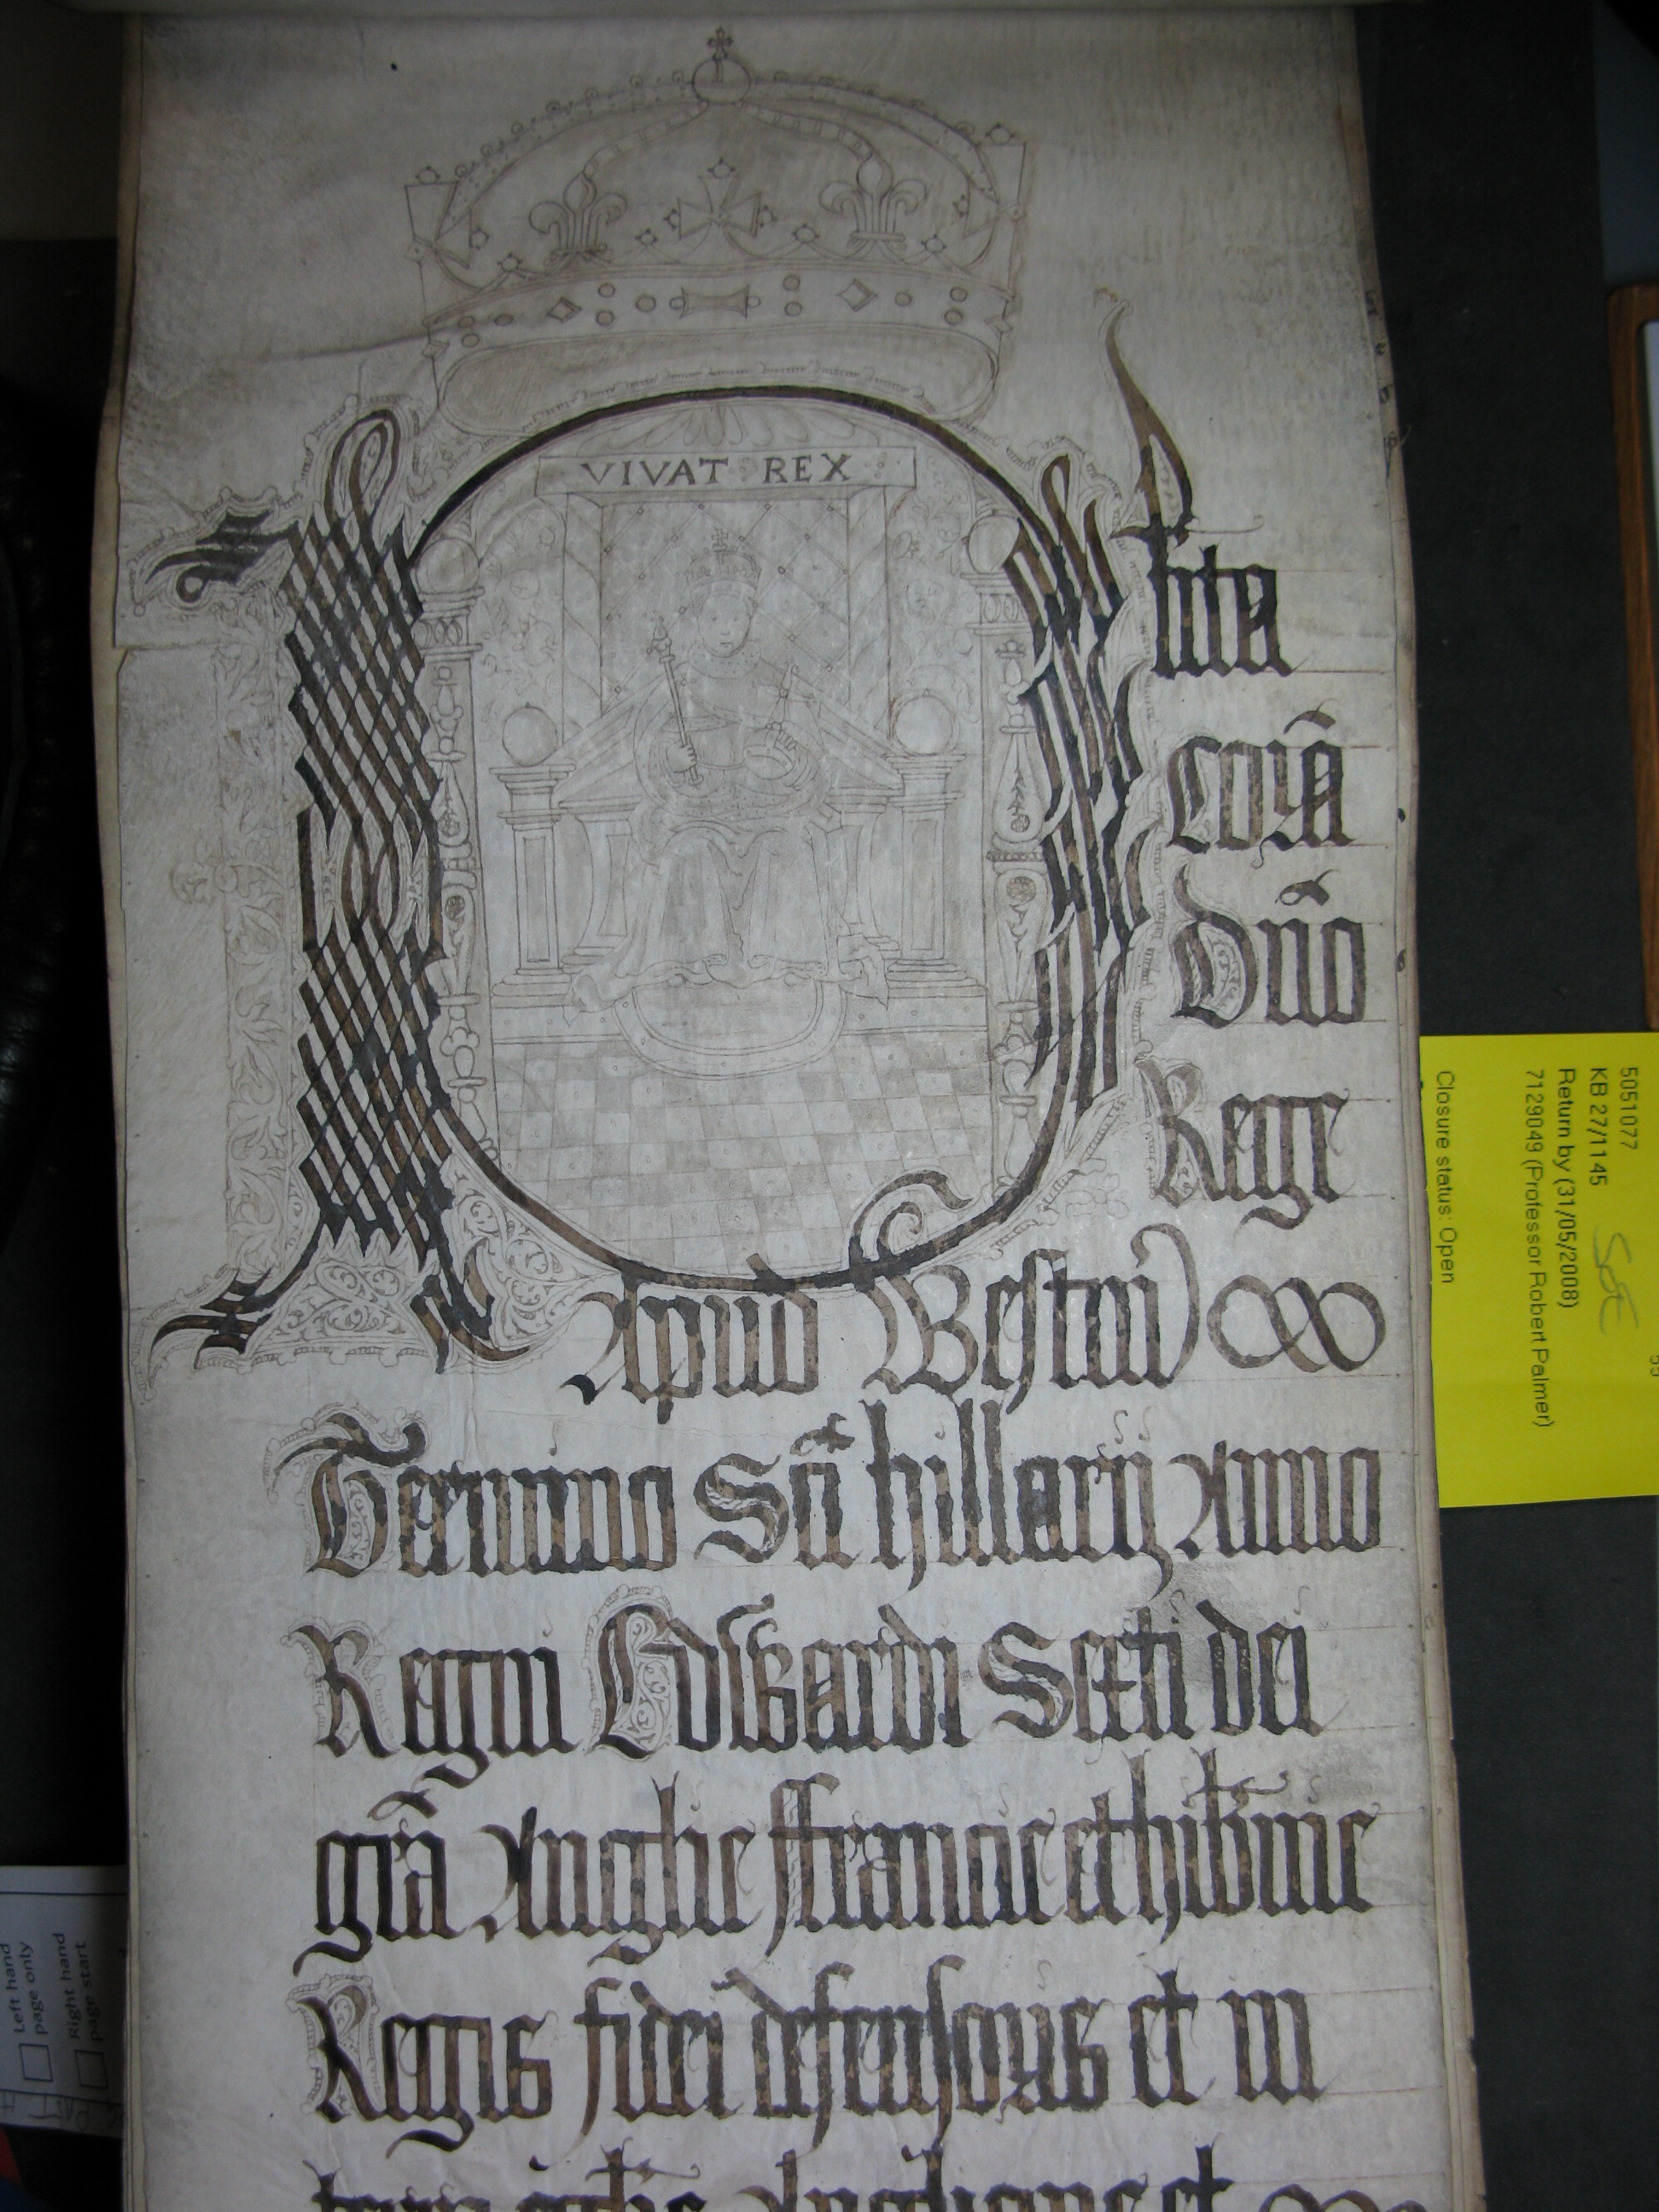 VIVAT REX
Plita
corā
Dño
Rege
Apud Westm̄
Termino Sc̄i hillarij Anno
Regni Edwardi Sexti dei
grā Anglie ffrancie et hib̄nie
Regis fidei defensoris et in
5051077
KB 27/1145
Return by (31/05/2008)
7129049 (Professor Robert Palmer)
Closure status: Open
Left hand
page only
Right hand
page start